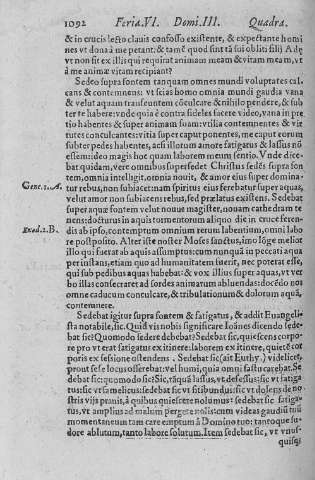 1092 Feria. VI. Domi. III. Quadra.
& in crucis lecto clauis confosso existente, & expectante homi
nes vt dona à me petant: & tamē quod sint tā sui obliti filij Adę
vt non sit ex illis qui requirat animam meam & vitam meam, vt
à me animæ vitam recipiant?
Sedeo supra fontem tanquam omnes mundi voluptates cal
cans & contemnens: vt scias homo omnia mundi gaudia vana
& velut aquam transeuntem cōculcare & nihilo pendere, & sub
ter te habere: vnde quia è contra fideles facere video, vana in pre
tio habentes & super animam suam: vilia contemnentes & vir
tutes conculcantes: vitia super caput ponentes, me caput eorum
subter pedes habentes, acsi illorum amore fatigatus & lassus nō
essem: ideo magis hoc quam laborem meum sentio. Vnde dice
bat quidam, vere omnibus supersedet Christus sedēs supra fon
tem, omnia intelligit, omnia nouit, & amor eius super domina
Gene. 1. A. tur rebus, non subiacet: nam spiritus eius ferebatur super aquas,
velut amor non subiacens rebus, sed prælatus existens. Sedebat
super aquæ fontem velut nouus magister, nouam cathedram te
nens: docturus in aqua tormentorum aliquo die in cruce feren-
Exod. 2. B. dit ab ipso, contemptum omnium rerum labentium, omni labo
re postposito. Alter iste noster Moses sanctus, imò lōge melior
illo qui fuerat ab aquis assumptus: cum nunquā in peccati aqua
per instans, etiam quo ad humanitatem fuerit, nec poterat esse,
qui sub pedibus aquas habebat: & vox illius super aquas, vt ver
bo illas consecraret ad sordes animarum abluendas: docēdo nos
omne caducum conculcare, & tribulationum & dolorum aquā,
contemnere.
Sedebat igitur supra fontem & fatigatus, & addit Euangeli
sta notabile, sic. Quid vis nobis significare Ioānes dicendo sede-
bat sic? Quomodo sedere debebat? Sedebat sic, quiescens corpo-
re pro vt erat fatigatus ex itinere: laborem ex itinere, quietē cor
poris ex sessione ostendens. Sedebat sic (ait Euthy.) videlicet,
prout sese locus offerebat: vel humi, quia omni fastu carebat. Se
debat sic: quomodo sic? Sic, tāquā lassus, vt defessus: sic vt fatiga-
tus: sic vt famelicus: sedebat sic vt sitibundus: sic vt dolens de no
stris vijs prauis, à quibus quiescere nolumus: sedebat sic fatiga-
tus, vt amplius ad malum pergere nolis: cum videas gaudiū tuū
momentaneum tam care emptum à Domino tuo: tanto que su-
dore ablutum, tanto labore solutum. Item sedebat sic, vt vnus-
quisq;